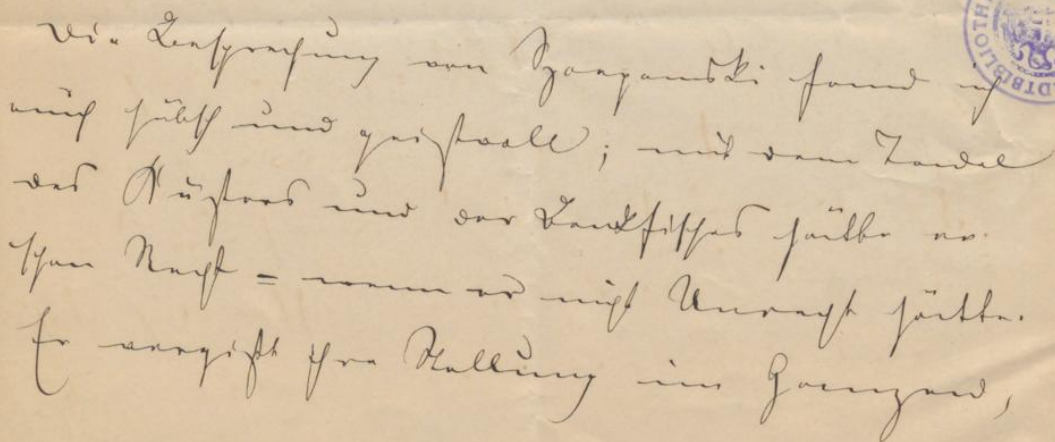 Die Besprechung von Szczepanski fand ich
auch hübsch und geistvoll; mit dem Tadel
des Küsters und der Backfisches hätte er
schon Recht = wenn er nicht Unrecht hätte.
Er vergißt ihre Stellung im Ganzen,